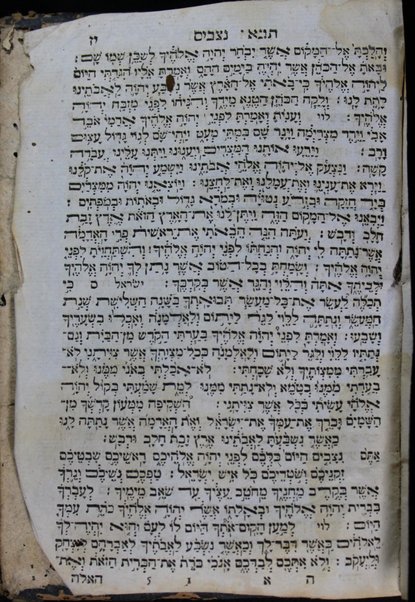 תבוא נצבים יז
וְהָלַכְתָּ אֶל־הַמָּקוֹם אֲשֶׁר יִבְחַר יְהוָה אֱלֹהֶיךָ לְשַׁכֵּן שְׁמוֹ שָׁם׃
וּבָאתָ אֶל־הַכֹּהֵן אֲשֶׁר יִהְיֶה בַּיָּמִים הָהֵם וְאָמַרְתָּ אֵלָיו הִגַּדְתִּי הַיּוֹם
לַיהוָה אֱלֹהֶיךָ כִּי־בָאתִי אֶל־הָאָרֶץ אֲשֶׁר נִשְׁבַּע יְהוָה לַאֲבֹתֵינוּ
לָתֶת לָנוּ׃ וְלָקַח הַכֹּהֵן הַטֶּנֶא מִיָּדֶךָ וְהִנִּיחוֹ לִפְנֵי מִזְבַּח יְהוָה
אֱלֹהֶיךָ׃ לוי וְעָנִיתָ וְאָמַרְתָּ לִפְנֵי יְהוָה אֱלֹהֶיךָ אֲרַמִּי אֹבֵד
אָבִי וַיֵּרֶד מִצְרַיְמָה וַיָּגָר שָׁם בִּמְתֵי מְעָט וַיְהִי שָׁם לְגוֹי גָּדוֹל עָצוּם
וָרָב׃ וַיָּרֵעוּ אֹתָנוּ הַמִּצְרִים וַיְעַנּוּנוּ וַיִּתְּנוּ עָלֵינוּ עֲבֹדָה
קָשָׁה׃ וַנִּצְעַק אֶל־יְהוָה אֱלֹהֵי אֲבֹתֵינוּ וַיִּשְׁמַע יְהוָה אֶת־קֹלֵנוּ
וַיַּרְא אֶת־עָנְיֵנוּ וְאֶת־עֲמָלֵנוּ וְאֶת־לַחֲצֵנוּ׃ וַיּוֹצִאֵנוּ יְהוָה מִמִּצְרַיִם
בְּיָד חֲזָקָה וּבִזְרֹעַ נְטוּיָה וּבְמֹרָא גָּדֹל וּבְאֹתוֹת וּבְמֹפְתִים׃
וַיְבִאֵנוּ אֶל־הַמָּקוֹם הַזֶּה וַיִּתֶּן־לָנוּ אֶת־הָאָרֶץ הַזֹּאת אֶרֶץ זָבַת
חָלָב וּדְבָשׁ׃ וְעַתָּה הִנֵּה הֵבֵאתִי אֶת־רֵאשִׁית פְּרִי הָאֲדָמָה
אֲשֶׁר־נָתַתָּה לִּי יְהוָה וְהִנַּחְתּוֹ לִפְנֵי יְהוָה אֱלֹהֶיךָ וְהִשְׁתַּחֲוִיתָ לִפְנֵי
יְהוָה אֱלֹהֶיךָ׃ וְשָׂמַחְתָּ בְכָל־הַטּוֹב אֲשֶׁר נָתַן לְךָ יְהוָה אֱלֹהֶיךָ
וּלְבֵיתֶךָ אַתָּה וְהַלֵּוִי וְהַגֵּר אֲשֶׁר בְּקִרְבֶּךָ׃ ישראל ס כִּי
תְכַלֶּה לַעְשֵׂר אֶת־כָּל־מַעְשַׂר תְּבוּאָתְךָ בַּשָּׁנָה הַשְּׁלִישִׁת שְׁנַת
הַמַּעֲשֵׂר וְנָתַתָּה לַלֵּוִי לַגֵּר לַיָּתוֹם וְלָאַלְמָנָה וְאָכְלוּ בִשְׁעָרֶיךָ
וְשָׂבֵעוּ׃ וְאָמַרְתָּ לִפְנֵי יְהוָה אֱלֹהֶיךָ בִּעַרְתִּי הַקֹּדֶשׁ מִן־הַבַּיִת וְגַם
נְתַתִּיו לַלֵּוִי וְלַגֵּר לַיָּתוֹם וְלָאַלְמָנָה כְּכָל־מִצְוָתְךָ אֲשֶׁר צִוִּיתָנִי לֹא־
עָבַרְתִּי מִמִּצְוֹתֶיךָ וְלֹא שָׁכָחְתִּי׃ לֹא־אָכַלְתִּי בְאֹנִי מִמֶּנּוּ וְלֹא־
בִעַרְתִּי מִמֶּנּוּ בְּטָמֵא וְלֹא־נָתַתִּי מִמֶּנּוּ לְמֵת שָׁמַעְתִּי בְּקוֹל יְהוָה
אֱלֹהָי עָשִׂיתִי כְּכֹל אֲשֶׁר צִוִּיתָנִי׃ הַשְׁקִיפָה מִמְּעוֹן קָדְשְׁךָ מִן־
הַשָּׁמַיִם וּבָרֵךְ אֶת־עַמְּךָ אֶת־יִשְׂרָאֵל וְאֵת הָאֲדָמָה אֲשֶׁר נָתַתָּה לָנוּ
כַּאֲשֶׁר נִשְׁבַּעְתָּ לַאֲבֹתֵינוּ אֶרֶץ זָבַת חָלָב וּדְבָשׁ׃
אַתֶּם נִצָּבִים הַיּוֹם כֻּלְּכֶם לִפְנֵי יְהוָה אֱלֹהֵיכֶם רָאשֵׁיכֶם שִׁבְטֵיכֶם
זִקְנֵיכֶם וְשֹׁטְרֵיכֶם כֹּל אִישׁ יִשְׂרָאֵל׃ טַפְּכֶם נְשֵׁיכֶם וְגֵרְךָ
אֲשֶׁר בְּקֶרֶב מַחֲנֶיךָ מֵחֹטֵב עֵצֶיךָ עַד שֹׁאֵב מֵימֶיךָ׃ לְעָבְרְךָ
בִּבְרִית יְהוָה אֱלֹהֶיךָ וּבְאָלָתוֹ אֲשֶׁר יְהוָה אֱלֹהֶיךָ כֹּרֵת עִמְּךָ
הַיּוֹם׃ לוי לְמַעַן הָקִים־אֹתְךָ הַיּוֹם לוֹ לְעָם וְהוּא יִהְיֶה־לְּךָ
לֵאלֹהִים כַּאֲשֶׁר דִּבֶּר־לָךְ וְכַאֲשֶׁר נִשְׁבַּע לַאֲבֹתֶיךָ לְאַבְרָהָם לְיִצְחָק
וּלְיַעֲקֹב׃ וְלֹא אִתְּכֶם לְבַדְּכֶם אָנֹכִי כֹּרֵת אֶת־הַבְּרִית הַזֹּאת וְאֶת־
ה א ג 5 האלה